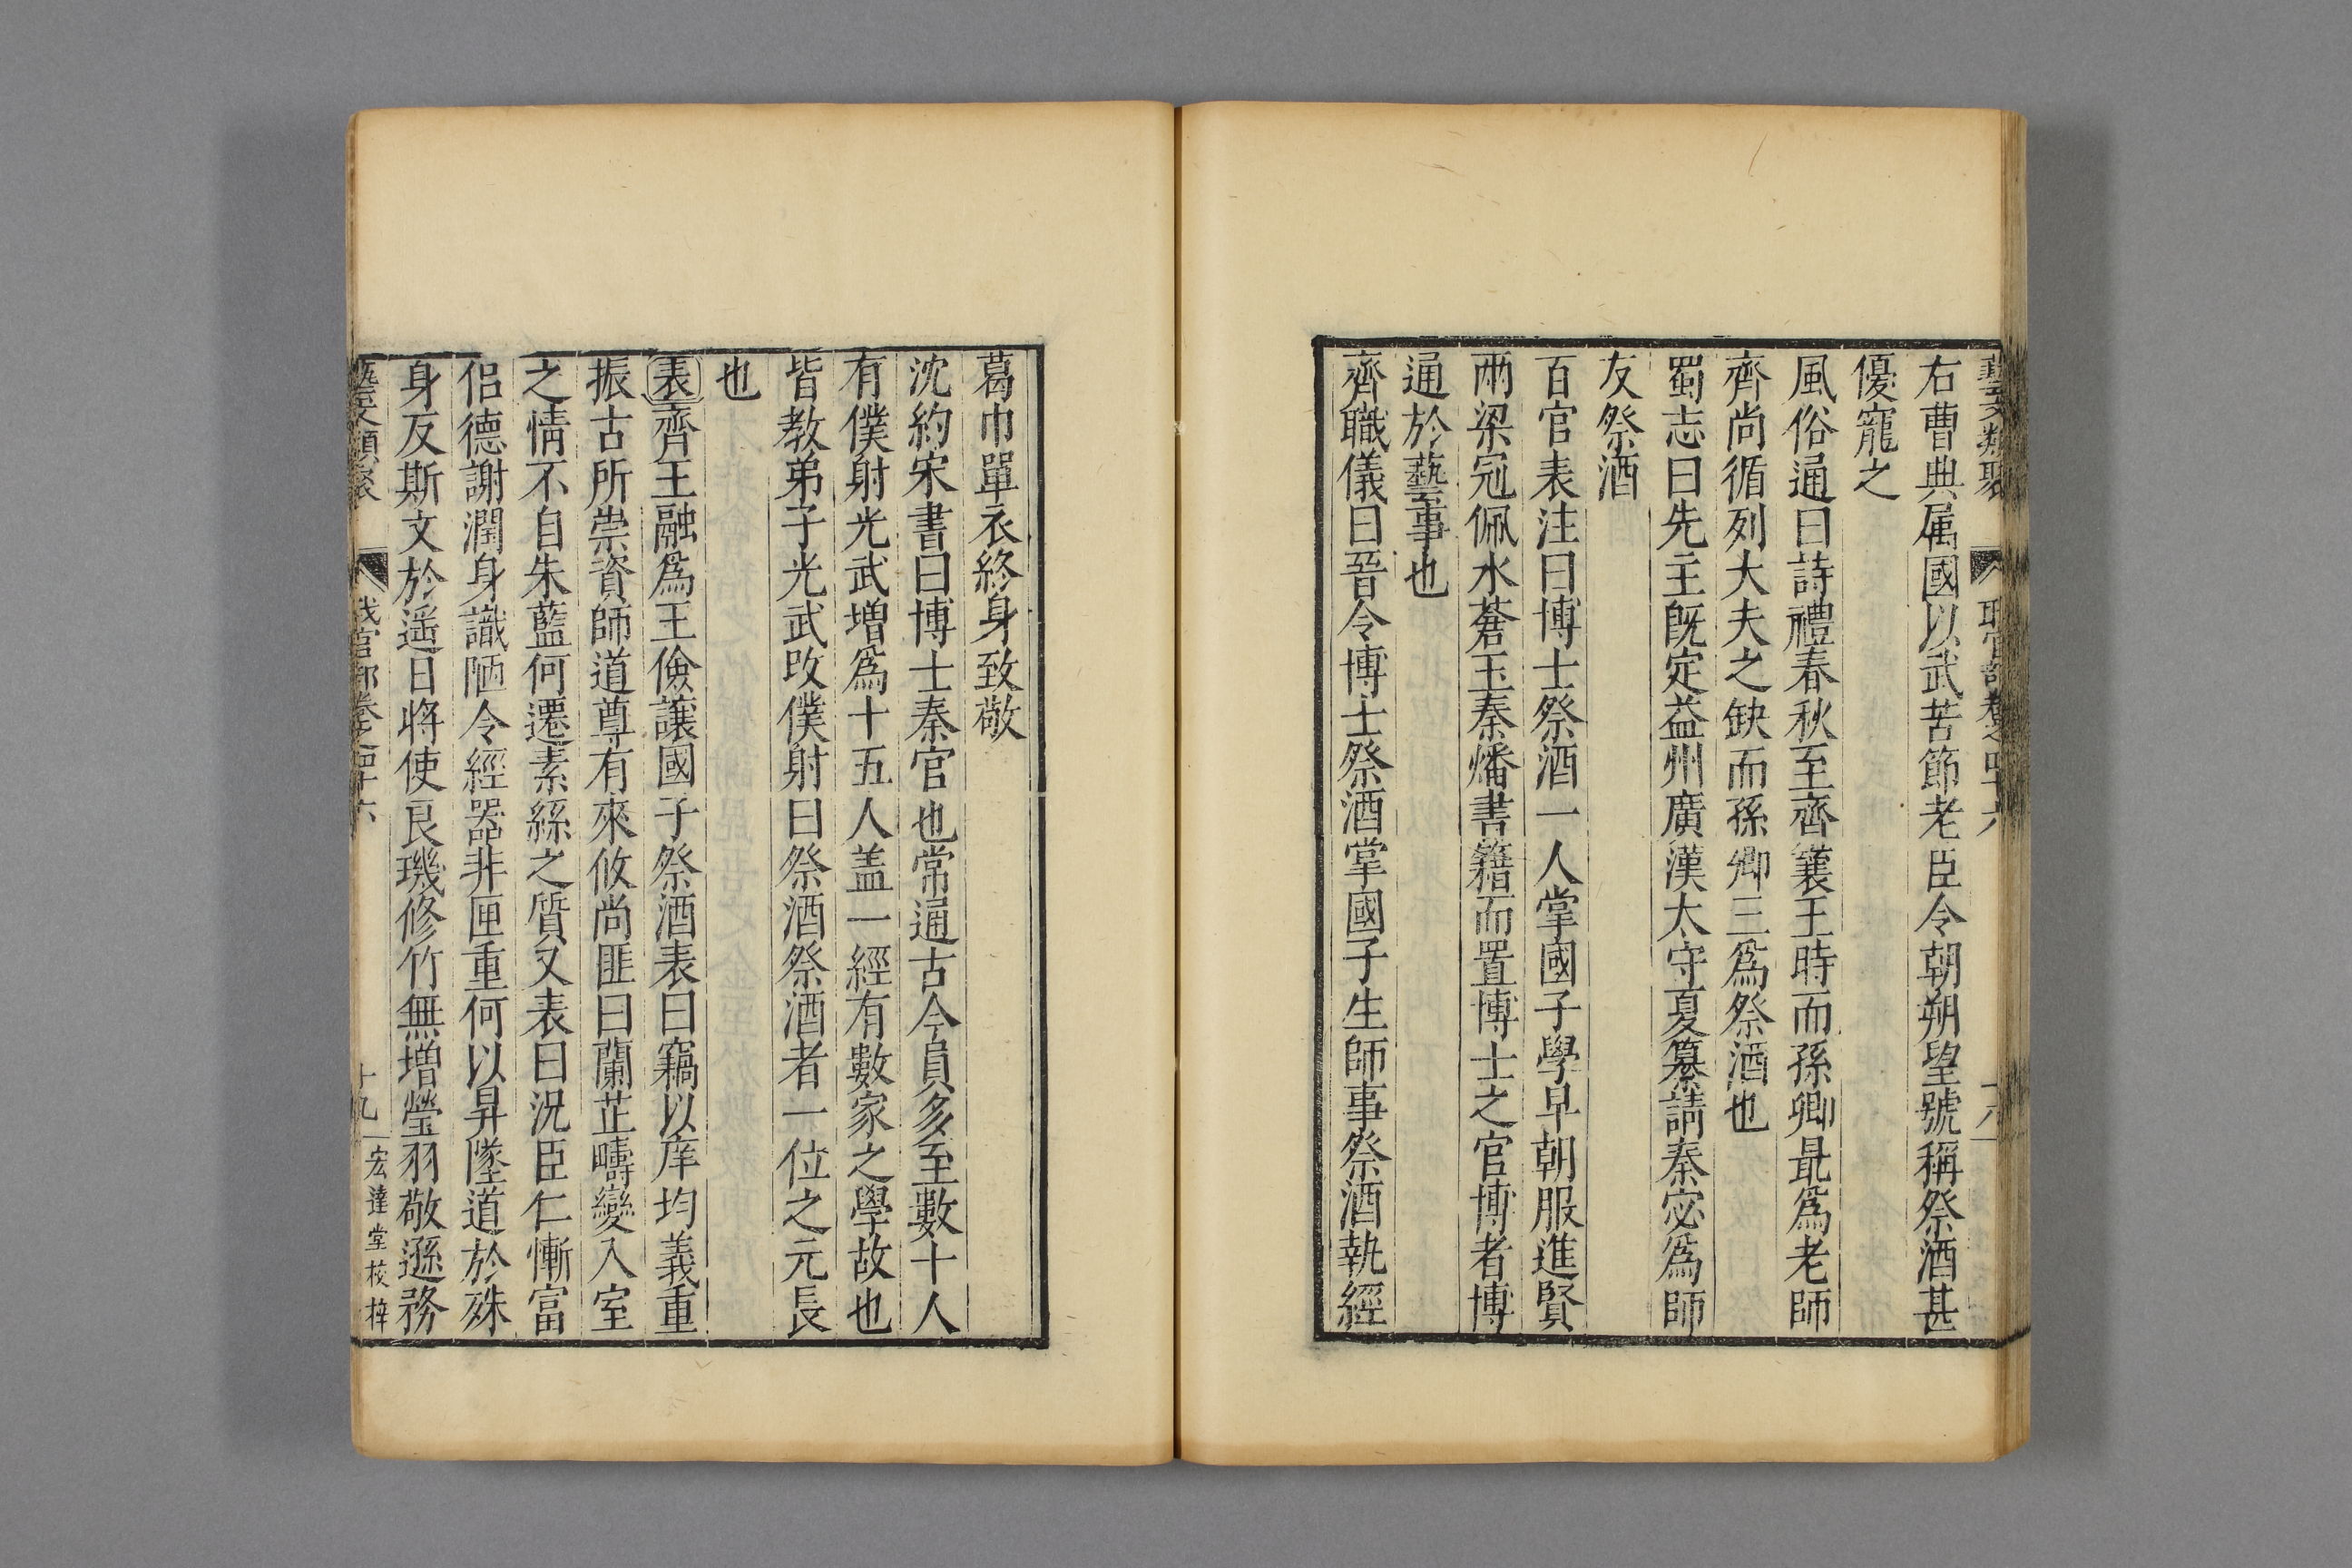 藝文類聚 職官部卷之四十六 十八
右曹典属國以武苦節老臣令朝朔望號稱祭酒甚
優寵之
風俗通曰詩禮春秋至齊襄王時而孫卿最爲老師
齊尚循列大夫之缺而孫卿三爲祭酒也
蜀志曰先主既定益州廣漢太守夏纂請秦宓爲師
友祭酒
百官表注曰博士祭酒一人掌國子學早朝服進賢
兩梁冠佩水蒼玉秦燔書籍而置博士之官博者博
通於藝事也
齊職儀曰晉令博士祭酒掌國子生師事祭酒執經
葛巾單衣終身致敬
沈約宋書曰博士秦官也常通古今員多至數十人
有僕射光武增爲十五人盖一經有數家之學故也
皆教弟子光武攺僕射曰祭酒祭酒者一位之元長
也
表齊王融爲王儉讓國子祭酒表曰竊以庠均義重
振古所崇資師道尊有來攸尚匪曰蘭芷疇變入室
之情不自朱藍何遷素絲之質又表曰況臣仁慚富
侣德謝潤身識陋令經器非匣重何以昇墜道於殊
身反斯文於遥日將使艮璣修竹無增瑩羽敬遜務
藝文類聚 職官部卷之四十六 十九 宏達堂校梓